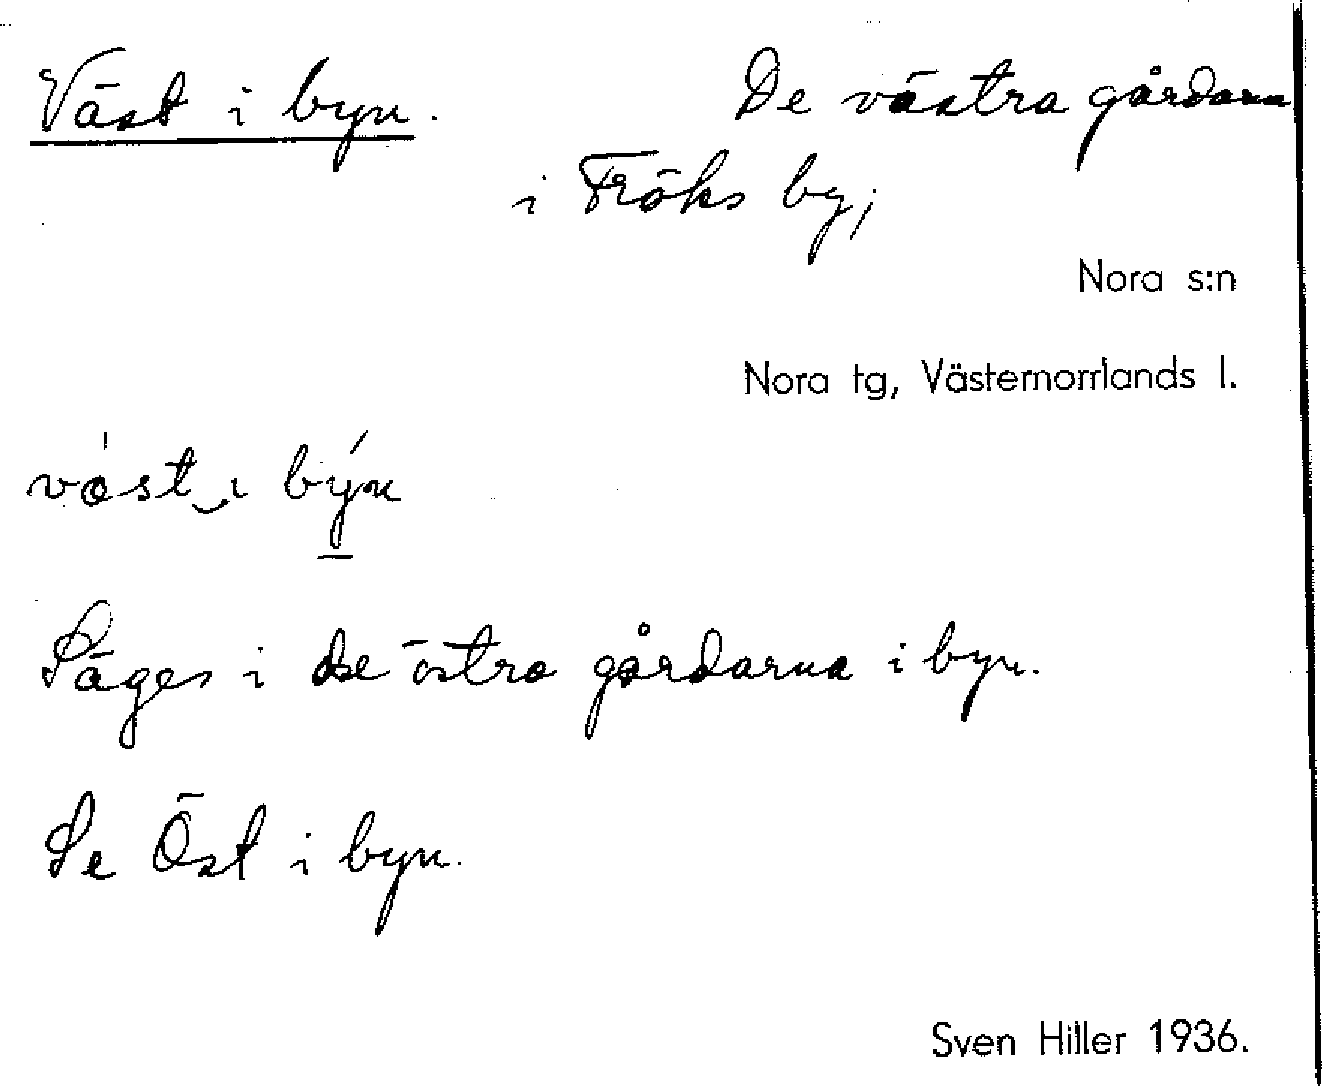 Väst i byn. De västra gårdarna
i Fröks by;
Nora s:n
Nora tg, Västernorrlands l.
våst‿ı býn
Säges i de östra gårdarna i byn.
Se Öst i byn.
Sven Hiller 1936.